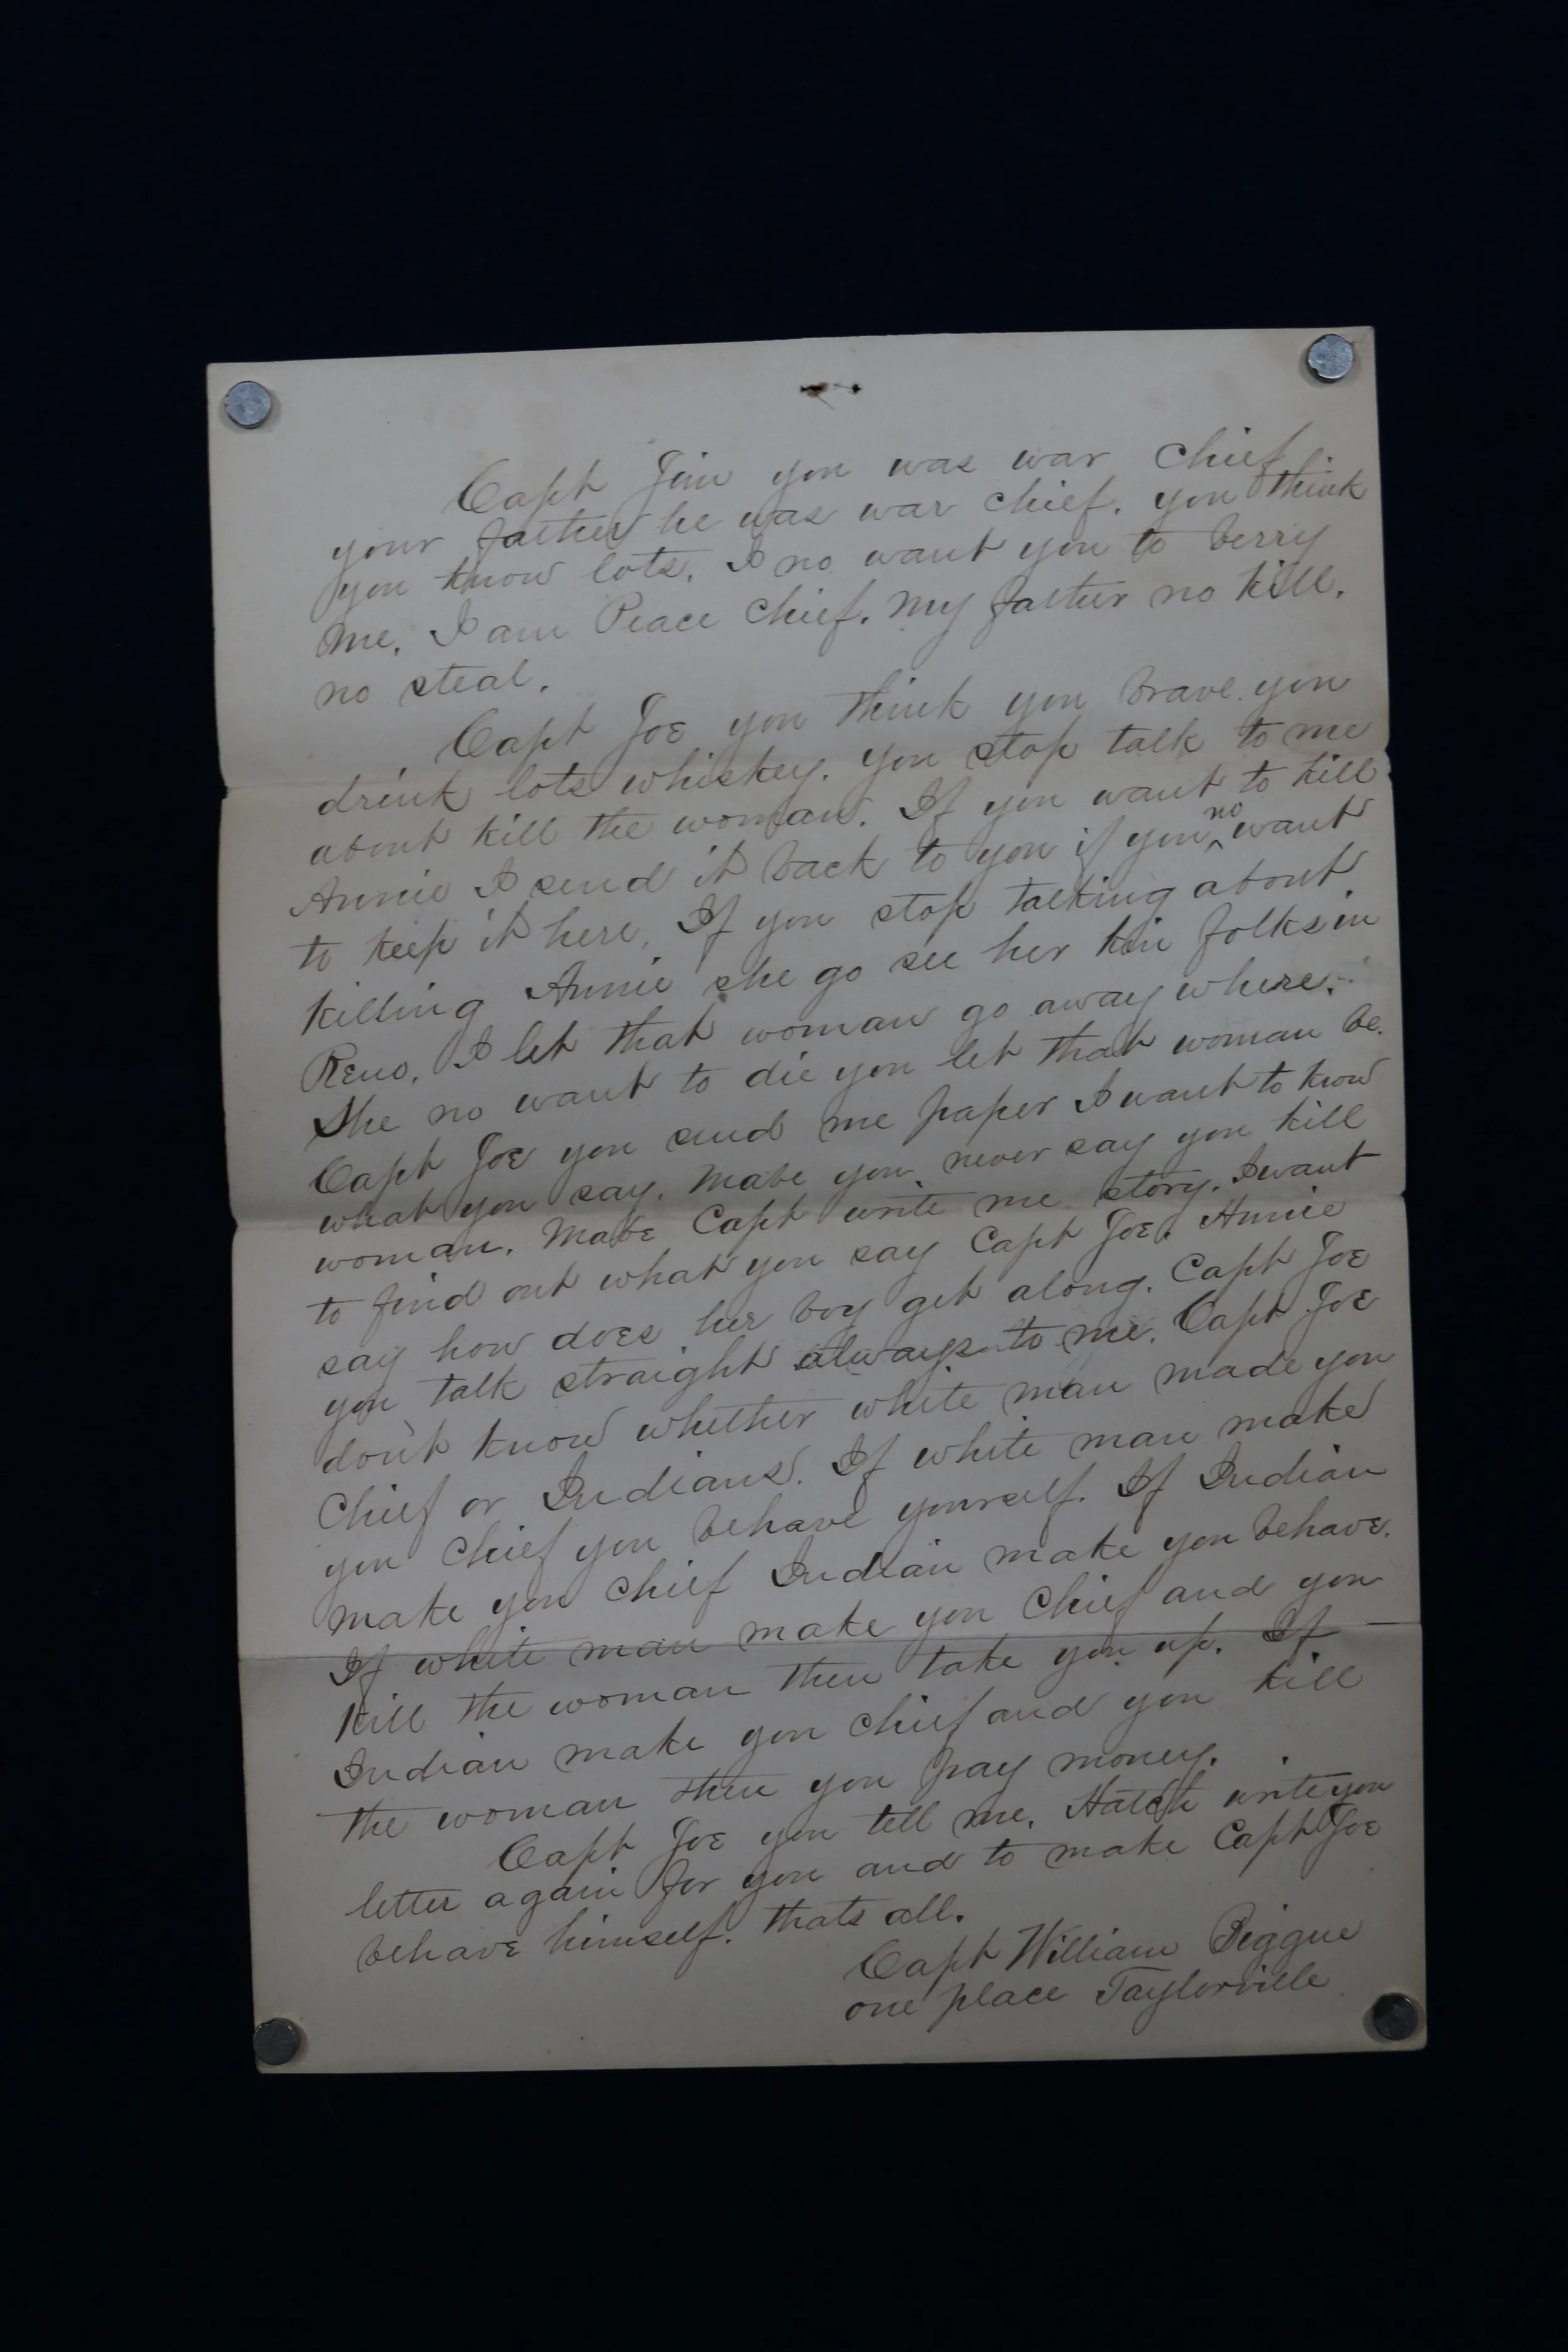 Capt Jim you was war chief
your father he was war chief. you think
you know lots. I no want you to berry
me. I am Peace chief. My father no kill.
no steal.
Capt Joe you think you brave you
drink lots whiskey. you stop talk to me
about kill the woman. If you want to kill
Annie I send it back to you if you no want
to keep it here. If you stop talking about
killing Annie she go see her kin folks in
Reno. I let that woman go away where.
She no want to die you let that woman be.
Capt Joe you send me paper I want to know
what you say. Mabe you never say you kill
woman. Mabe Capt write me story. I want
to find out what you say Capt Joe. Annie
say how does her boy get along. Capt Joe
you talk straight always to me. Capt Joe
don't know whether white man made you
Chief or Indians. If white man make
you chief you behave yourself. If Indian
make you chief Indian make you behave.
If white man make you chief and you
kill the woman then take you up. If
Indian make you chief and you kill
the woman then you pay money.
Capt Joe you tell me. Hatch write you
letter again for you and to make Capt Joe
behave himself. thats all.
Capt William Biggue
one place Taylorville